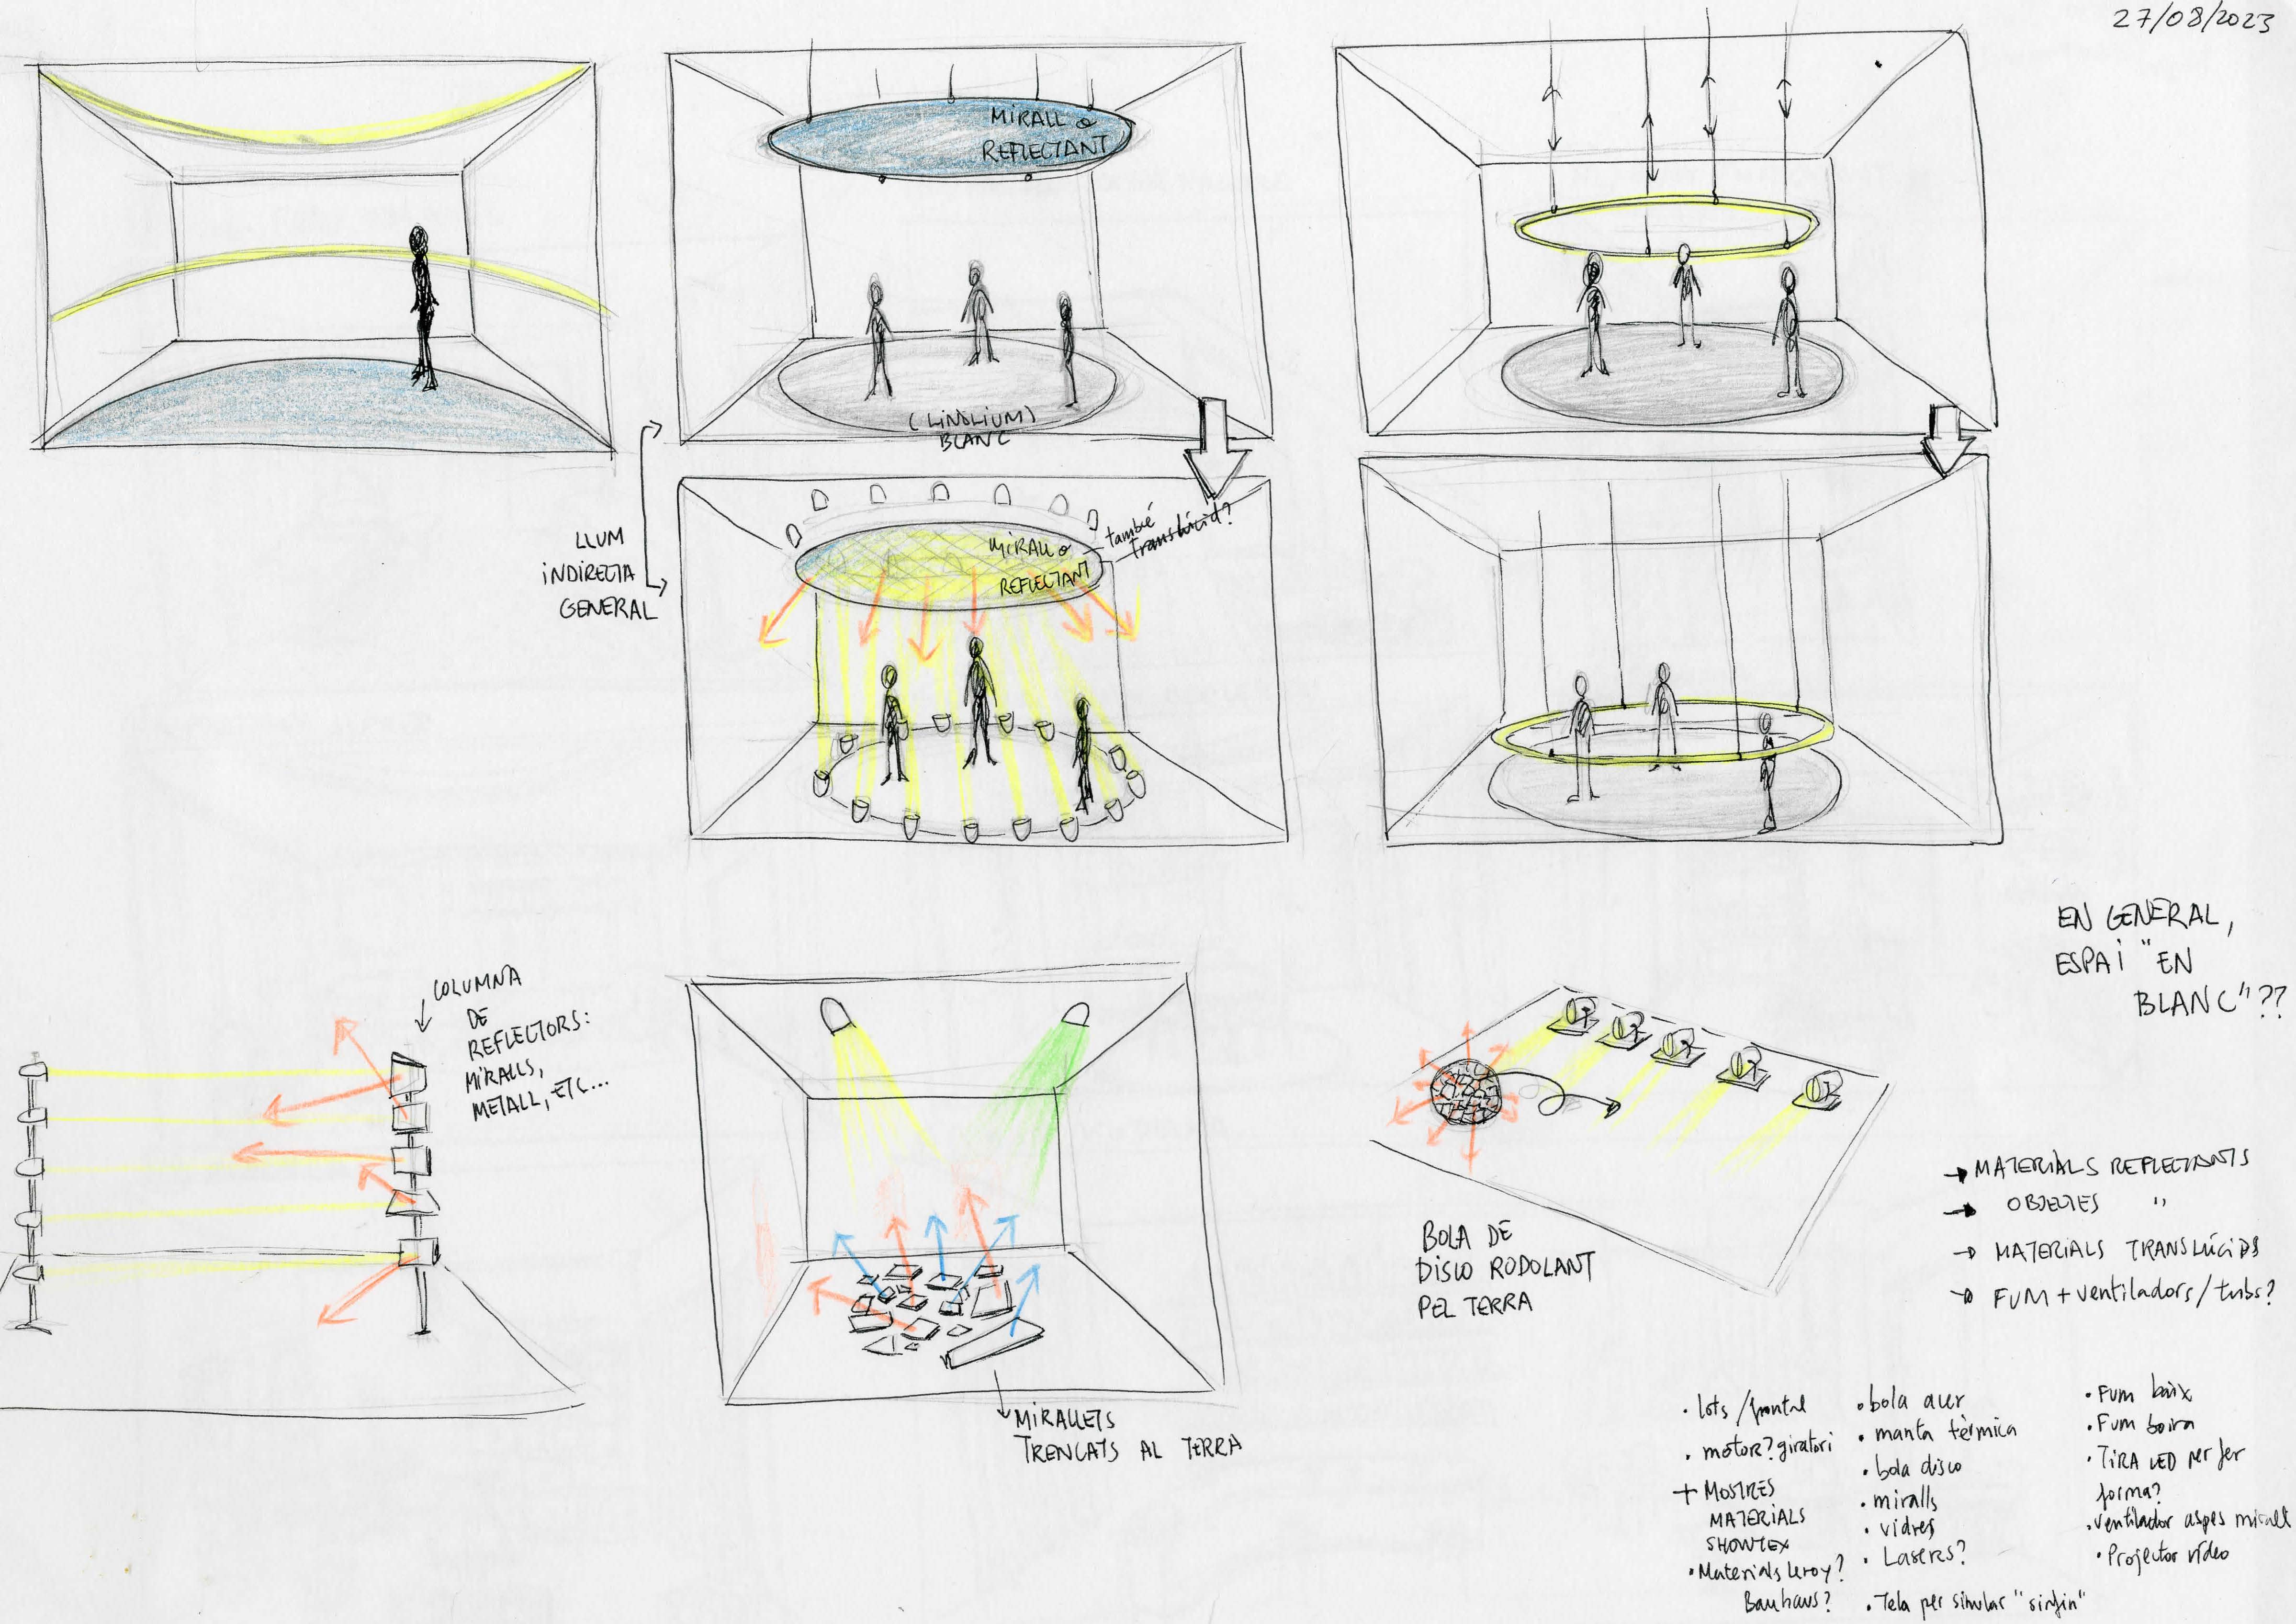 27/08/2023
MIRALL o
REFLECTANT
(LINOLIUM)
BLANC
LLUM
INDIRECTA
GENERAL
MIRALL o
REFLECTANT
també
translúcid?
EN GENERAL,
ESPAI "EN
BLANC"??
COLUMNA
DE
REFLECTORS:
MIRALLS,
METALL, ETC...
MIRALLETS
TRENCATS AL TERRA
BOLA DE
DISCO RODOLANT
PEL TERRA
→ MATERIALS REFLECTANTS
→ OBJECTES "
→ MATERIALS TRANSLÚCIDS
→ FUM + ventiladors/tubs?
• lots/frontal
• motor? giratori
+ MOSTRES
MATERIALS
SHOWTEX
• Materials Leroy?
Bauhaus?
• bola acer
• manta tèrmica
• bola disco
• miralls
• vidres
• Lasers?
• Tela per simular "sinfin"
• Fum baix
• Fum boira
• TIRA LED per fer
forma?
• ventilador aspes mirall
• Projector vídeo